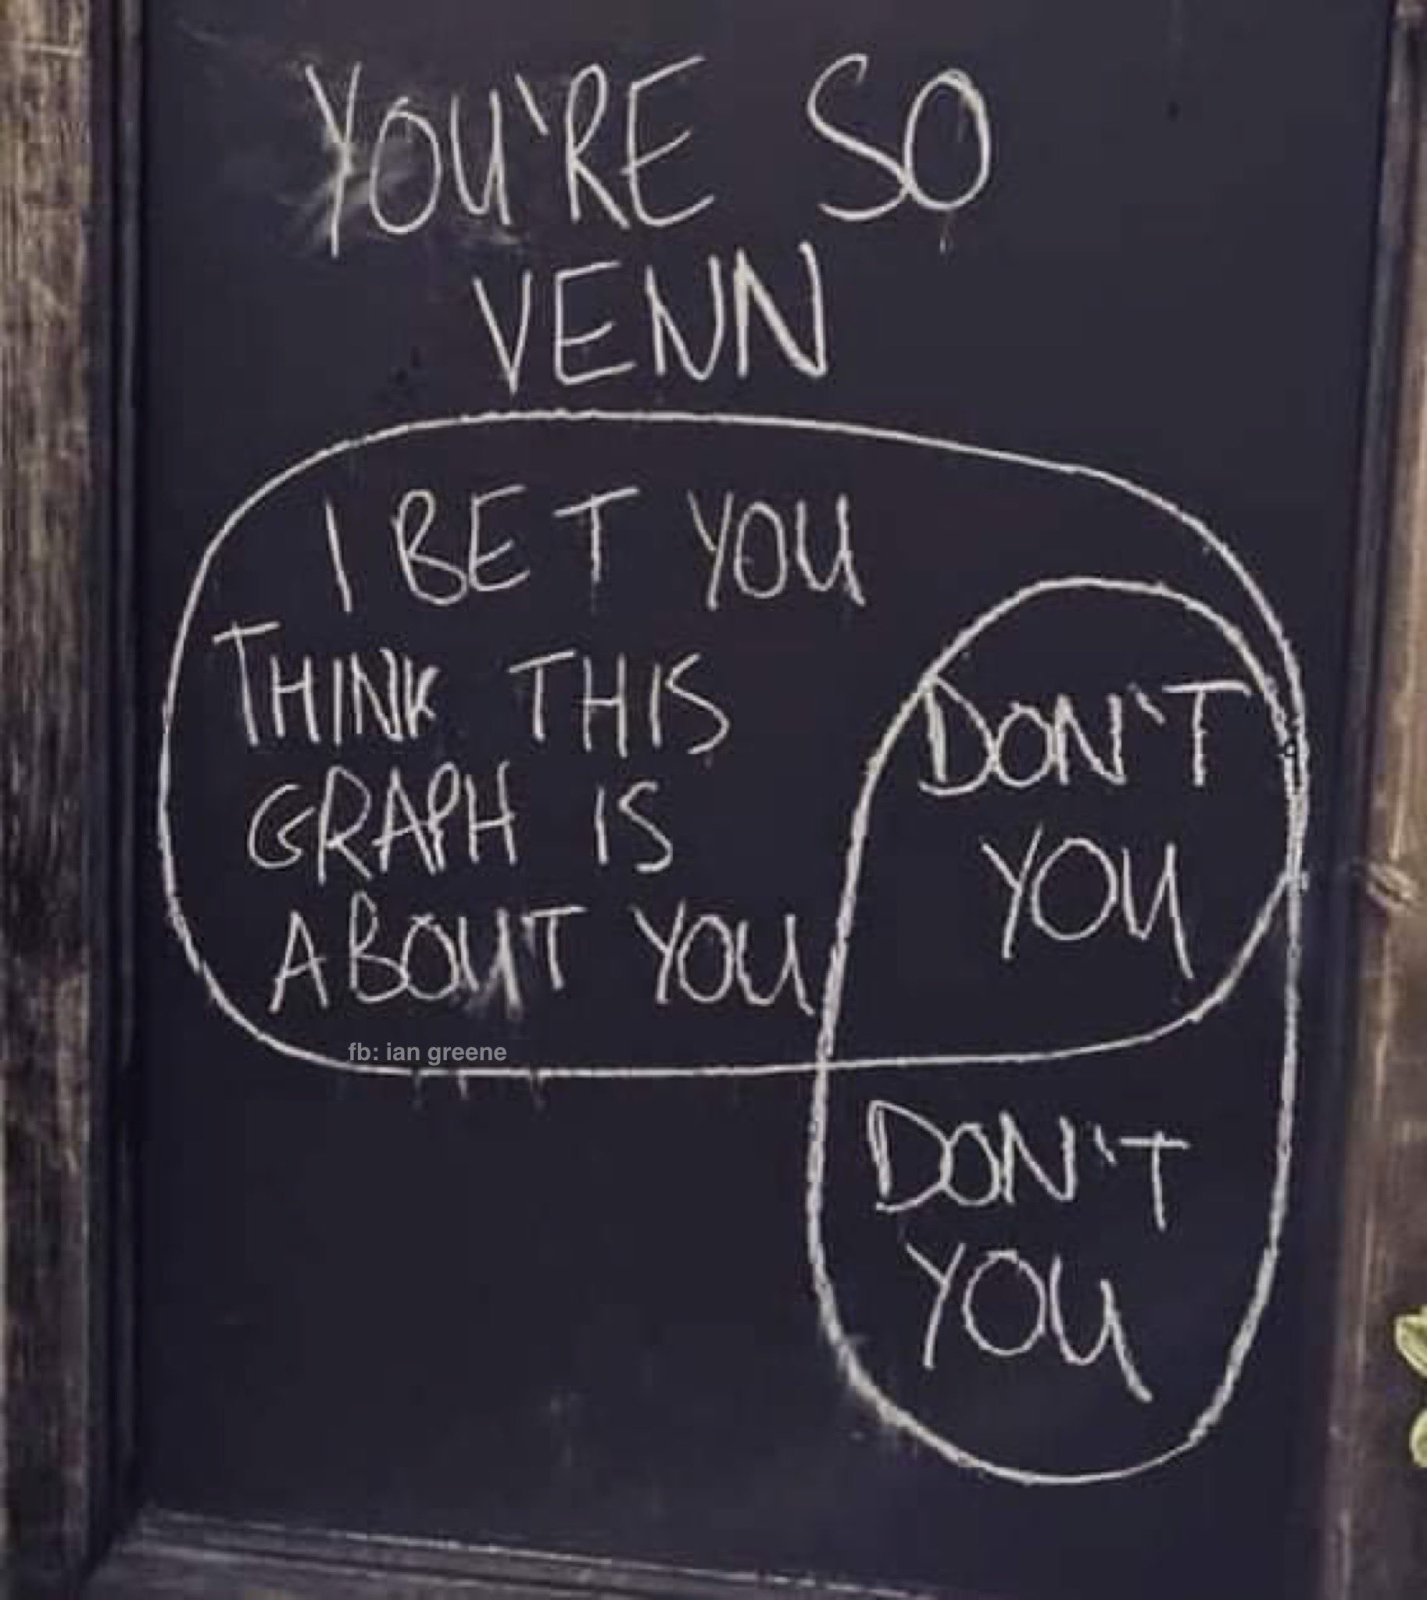 YOU'RE SO
VENN
I BET YOU
THINK THIS
GRAPH IS
ABOUT YOU
DON'T
YOU
fb: ian greene
DON'T
YOU